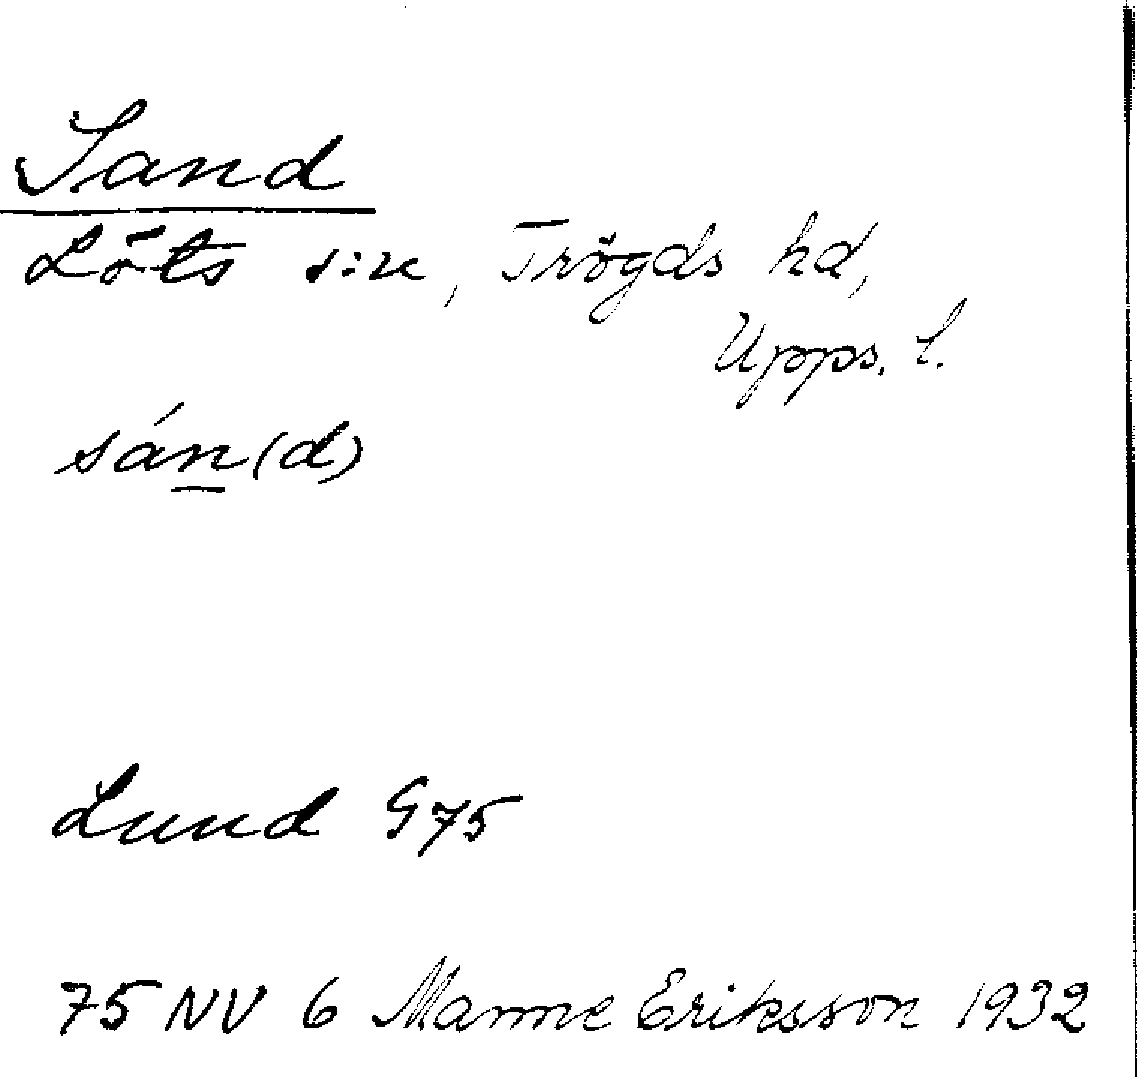 Sand
Löts s:n, Trögds hd,
Upps. l.
sán(d)
Lund G75
75 NV 6 Manne Eriksson 1932